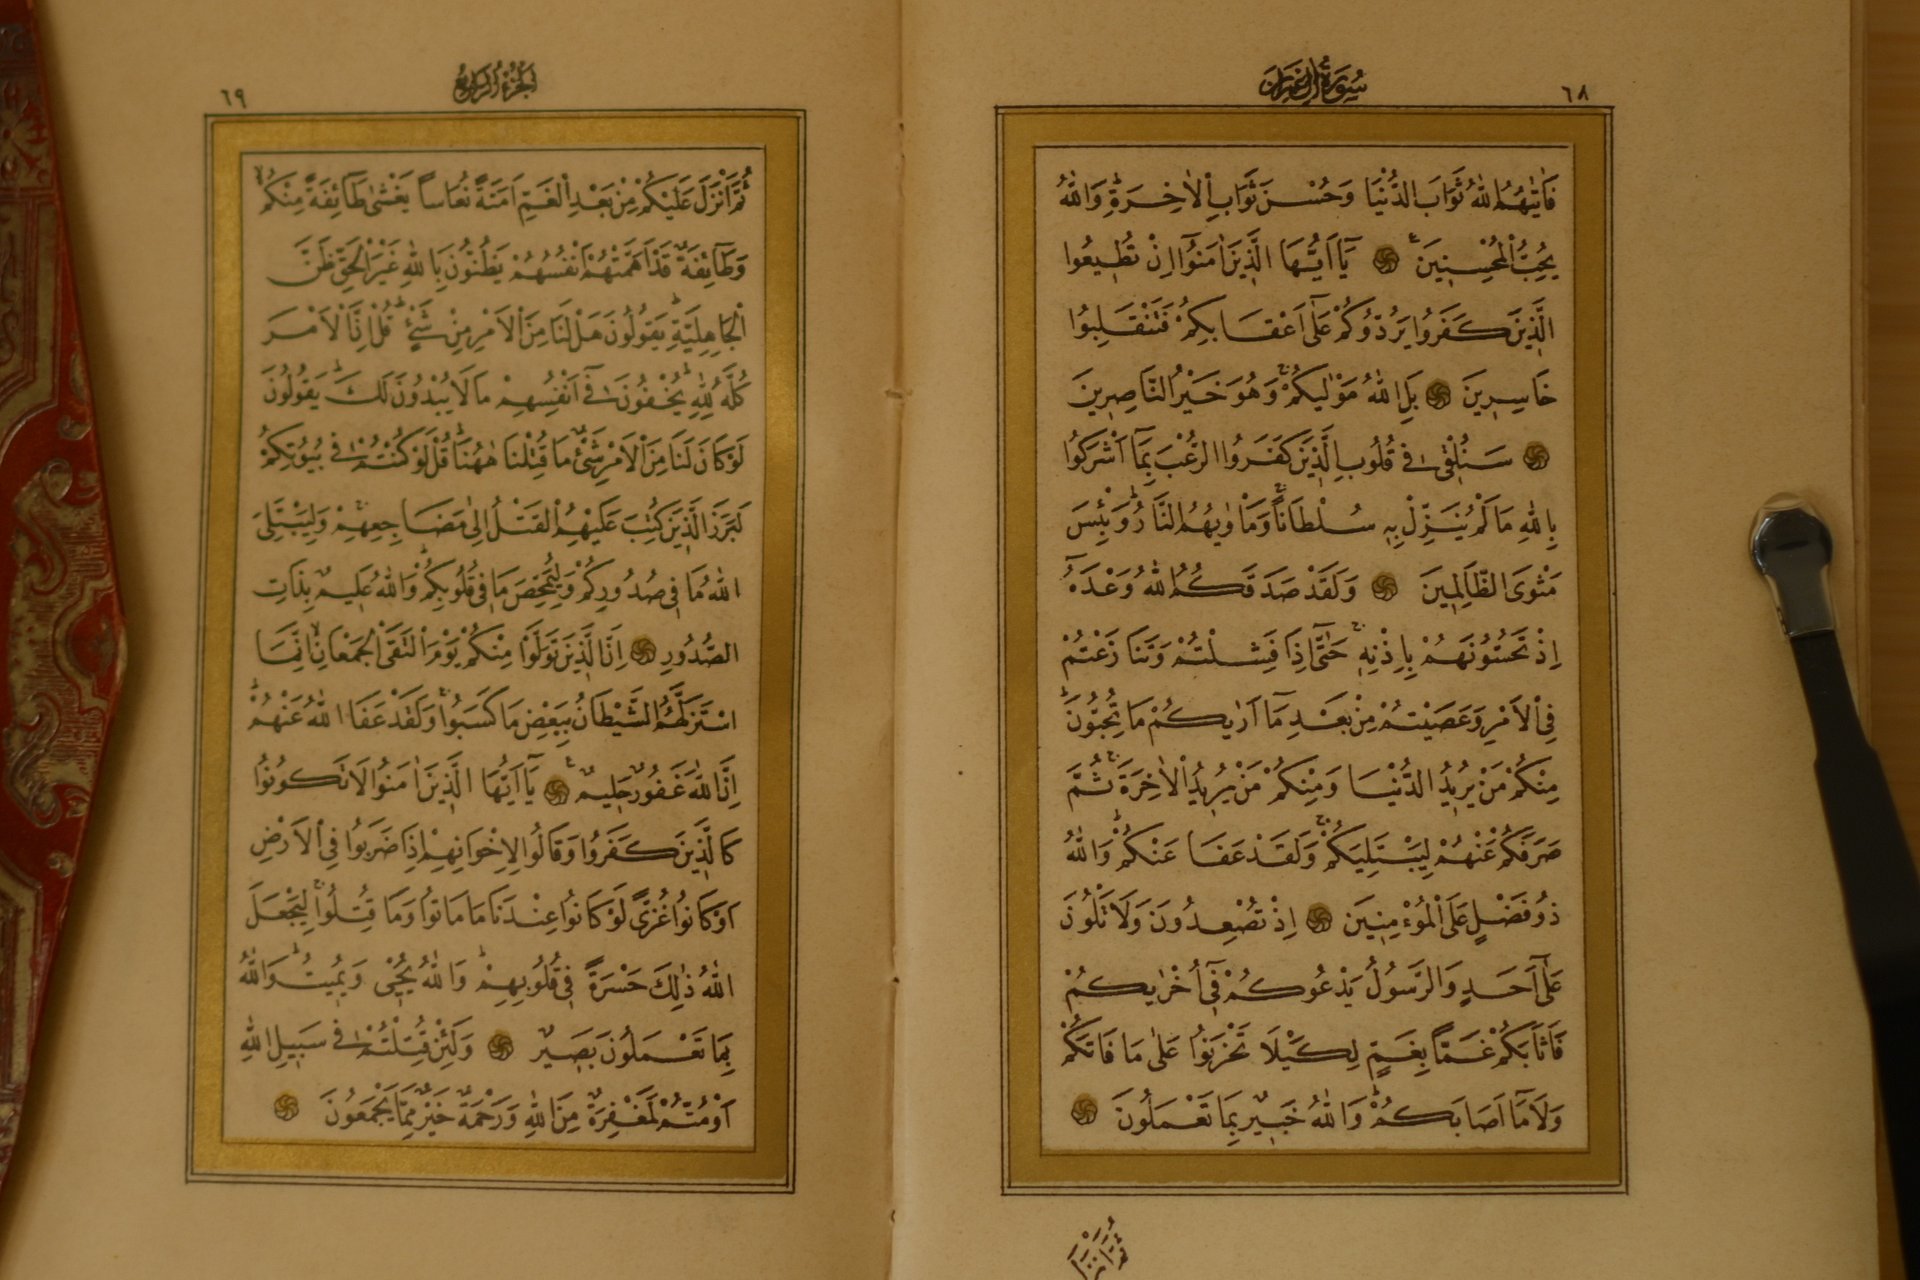 سُورَةُ اٰلِ عِمْرٰنَ
٦٨
فَاٰتٰيهُمُ اللّٰهُ ثَوَابَ الدُّنْيَا وَحُسْنَ ثَوَابِ الْاٰخِرَةِ وَاللّٰهُ
يُحِبُّ الْمُحْسِنٖينَ يَٓا اَيُّهَا الَّذٖينَ اٰمَنُٓوا اِنْ تُطٖيعُوا
الَّذٖينَ كَفَرُوا يَرُدُّوكُمْ عَلٰٓى اَعْقَابِكُمْ فَتَنْقَلِبُوا
خَاسِرٖينَ بَلِ اللّٰهُ مَوْلٰيكُمْ وَهُوَ خَيْرُ النَّاصِرٖينَ
سَنُلْقٖى فٖى قُلُوبِ الَّذٖينَ كَفَرُوا الرُّعْبَ بِمَٓا اَشْرَكُوا
بِاللّٰهِ مَالَمْ يُنَزِّلْ بِهٖ سُلْطَانًا وَمَاْوٰيهُمُ النَّارُ وَبِئْسَ
مَثْوَى الظَّالِمٖينَ وَلَقَدْ صَدَقَكُمُ اللّٰهُ وَعْدَهُٓ
اِذْ تَحُسُّونَهُمْ بِاِذْنِهٖ حَتّٰٓى اِذَا فَشِلْتُمْ وَتَنَازَعْتُمْ
فِى الْاَمْرِ وَعَصَيْتُمْ مِنْ بَعْدِ مَٓا اَرٰيكُمْ مَا تُحِبُّونَ
مِنْكُمْ مَنْ يُرٖيدُ الدُّنْيَا وَمِنْكُمْ مَنْ يُرٖيدُ الْاٰخِرَةَ ثُمَّ
صَرَفَكُمْ عَنْهُمْ لِيَبْتَلِيَكُمْ وَلَقَدْ عَفَا عَنْكُمْ وَاللّٰهُ
ذُو فَضْلٍ عَلَى الْمُؤْمِنٖينَ اِذْ تُصْعِدُونَ وَلَا تَلْوُنَ
عَلٰٓى اَحَدٍ وَالرَّسُولُ يَدْعُوكُمْ فٖٓى اُخْرٰيكُمْ
فَاَثَابَكُمْ غَمًّا بِغَمٍّ لِكَيْلَا تَحْزَنُوا عَلٰى مَا فَاتَكُمْ
وَلَا مَٓا اَصَابَكُمْ وَاللّٰهُ خَبٖيرٌ بِمَا تَعْمَلُونَ
ثُمَّ اَنْزَلَ
اَلْجُزْءُ الرَّابِعُ
٦٩
ثُمَّ اَنْزَلَ عَلَيْكُمْ مِنْ بَعْدِ الْغَمِّ اَمَنَةً نُعَاسًا يَغْشٰى طَٓائِفَةً مِنْكُمْ
وَطَٓائِفَةٌ قَدْ اَهَمَّتْهُمْ اَنْفُسُهُمْ يَظُنُّونَ بِاللّٰهِ غَيْرَ الْحَقِّ ظَنَّ
الْجَاهِلِيَّةِ يَقُولُونَ هَلْ لَنَا مِنَ الْاَمْرِ مِنْ شَیْءٍ قُلْ اِنَّ الْاَمْرَ
كُلَّهُ لِلّٰهِ يُخْفُونَ فٖٓى اَنْفُسِهِمْ مَا لَا يُبْدُونَ لَكَ يَقُولُونَ
لَوْ كَانَ لَنَا مِنَ الْاَمْرِ شَیْءٌ مَا قُتِلْنَا هٰهُنَا قُلْ لَوْ كُنْتُمْ فٖى بُيُوتِكُمْ
لَبَرَزَ الَّذٖينَ كُتِبَ عَلَيْهِمُ الْقَتْلُ اِلٰى مَضَاجِعِهِمْ وَلِيَبْتَلِىَ
اللّٰهُ مَا فٖى صُدُورِكُمْ وَلِيُمَحِّصَ مَا فٖى قُلُوبِكُمْ وَاللّٰهُ عَلٖيمٌ بِذَاتِ
الصُّدُورِ اِنَّ الَّذٖينَ تَوَلَّوْا مِنْكُمْ يَوْمَ الْتَقَى الْجَمْعَانِ اِنَّمَا
اسْتَزَلَّهُمُ الشَّيْطَانُ بِبَعْضِ مَا كَسَبُوا وَلَقَدْ عَفَا اللّٰهُ عَنْهُمْ
اِنَّ اللّٰهَ غَفُورٌ حَلٖيمٌ يَٓا اَيُّهَا الَّذٖينَ اٰمَنُوا لَا تَكُونُوا
كَالَّذٖينَ كَفَرُوا وَقَالُوا لِاِخْوَانِهِمْ اِذَا ضَرَبُوا فِى الْاَرْضِ
اَوْ كَانُوا غُزًّى لَوْ كَانُوا عِنْدَنَا مَا مَاتُوا وَمَا قُتِلُوا لِيَجْعَلَ
اللّٰهُ ذٰلِكَ حَسْرَةً فٖى قُلُوبِهِمْ وَاللّٰهُ يُحْيٖى وَيُمٖيتُ وَاللّٰهُ
بِمَا تَعْمَلُونَ بَصٖيرٌ وَلَئِنْ قُتِلْتُمْ فٖى سَبٖيلِ اللّٰهِ
اَوْ مُتُّمْ لَمَغْفِرَةٌ مِنَ اللّٰهِ وَرَحْمَةٌ خَيْرٌ مِمَّا يَجْمَعُونَ